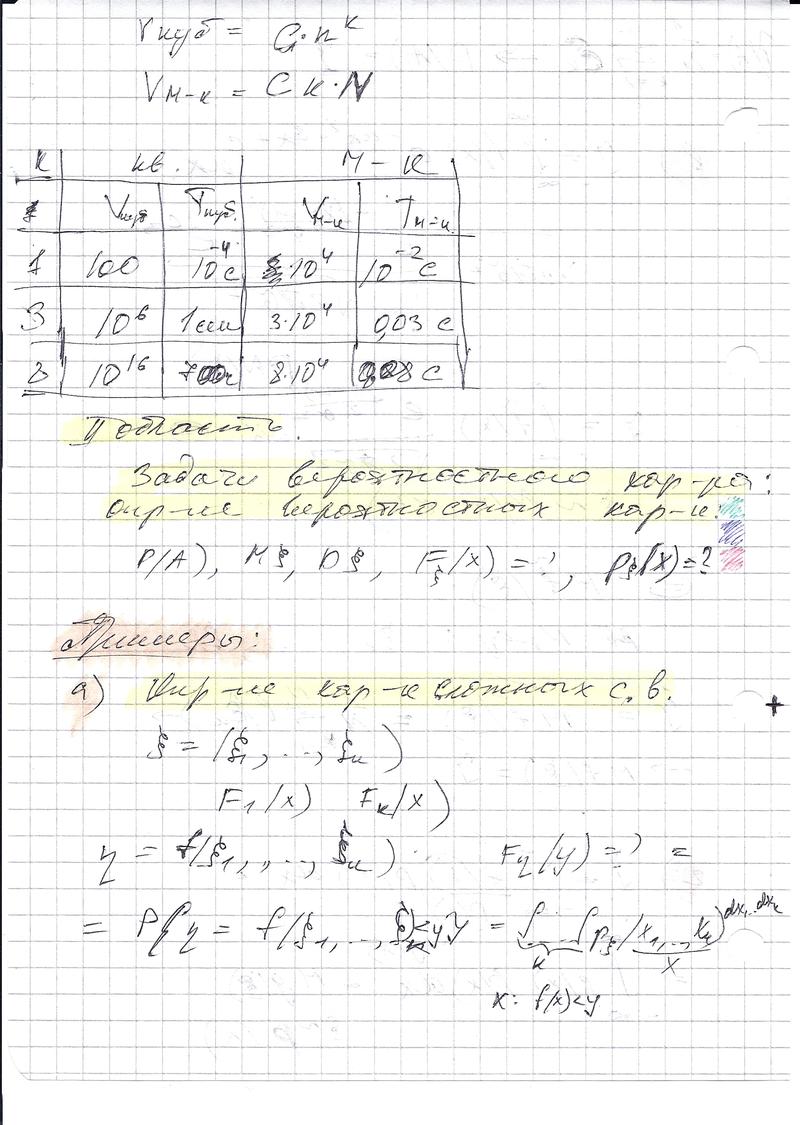 Vкуб = C₁·n^k
Vм-к = C k·N
K | кв. | М - К
Vкуб | Tкуб. | Vм-к | Tм-к
1 | 100 | 10^-4 c | ·10^4 | 10^-2 c
3 | 10^6 | 1 сек | 3·10^4 | 0,03 c
8 | 10^16 | | 8·10^4 | c
II область.
Задачи вероятностного хар-ра:
опр-ие вероятностных хар-к:
P(A), Mξ, Dξ, F_ξ(x) = ?, p_ξ(x) = ?
Примеры:
а) Опр-ие хар-к сложных с.в.
ξ = (ξ₁, ..., ξ_k)
F₁(x) F_k(x)
η = f(ξ₁, ..., ξ_k) F_η(y) = ? =
= P{η = f(ξ₁, ..., ξ_k) < y} = ∫...∫ p_ξ(x₁, .., x_k) dx₁...dx_k
k x
x: f(x)<y